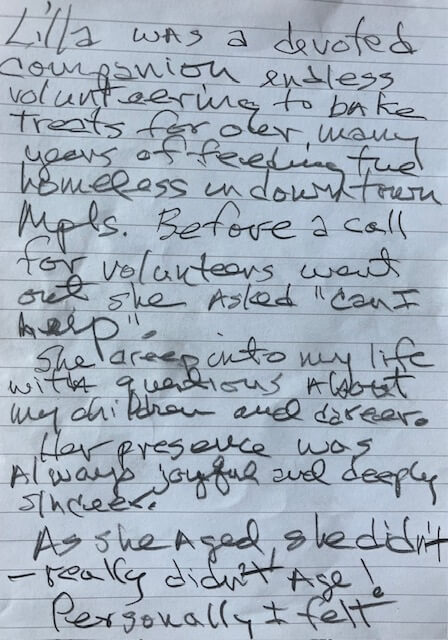 Lilla was a devoted
companion endless
volunteering to bake
treats for our many
years of feeding the
homeless in downtown
Mpls. Before a call
for volunteers went
out she asked "can I
help".
She creep into my life
with questions about
my children and career.
Her presence was
Always joyful and deeply
sincere.
As she Aged, she didn't
- really didn't Age!
Personally I felt